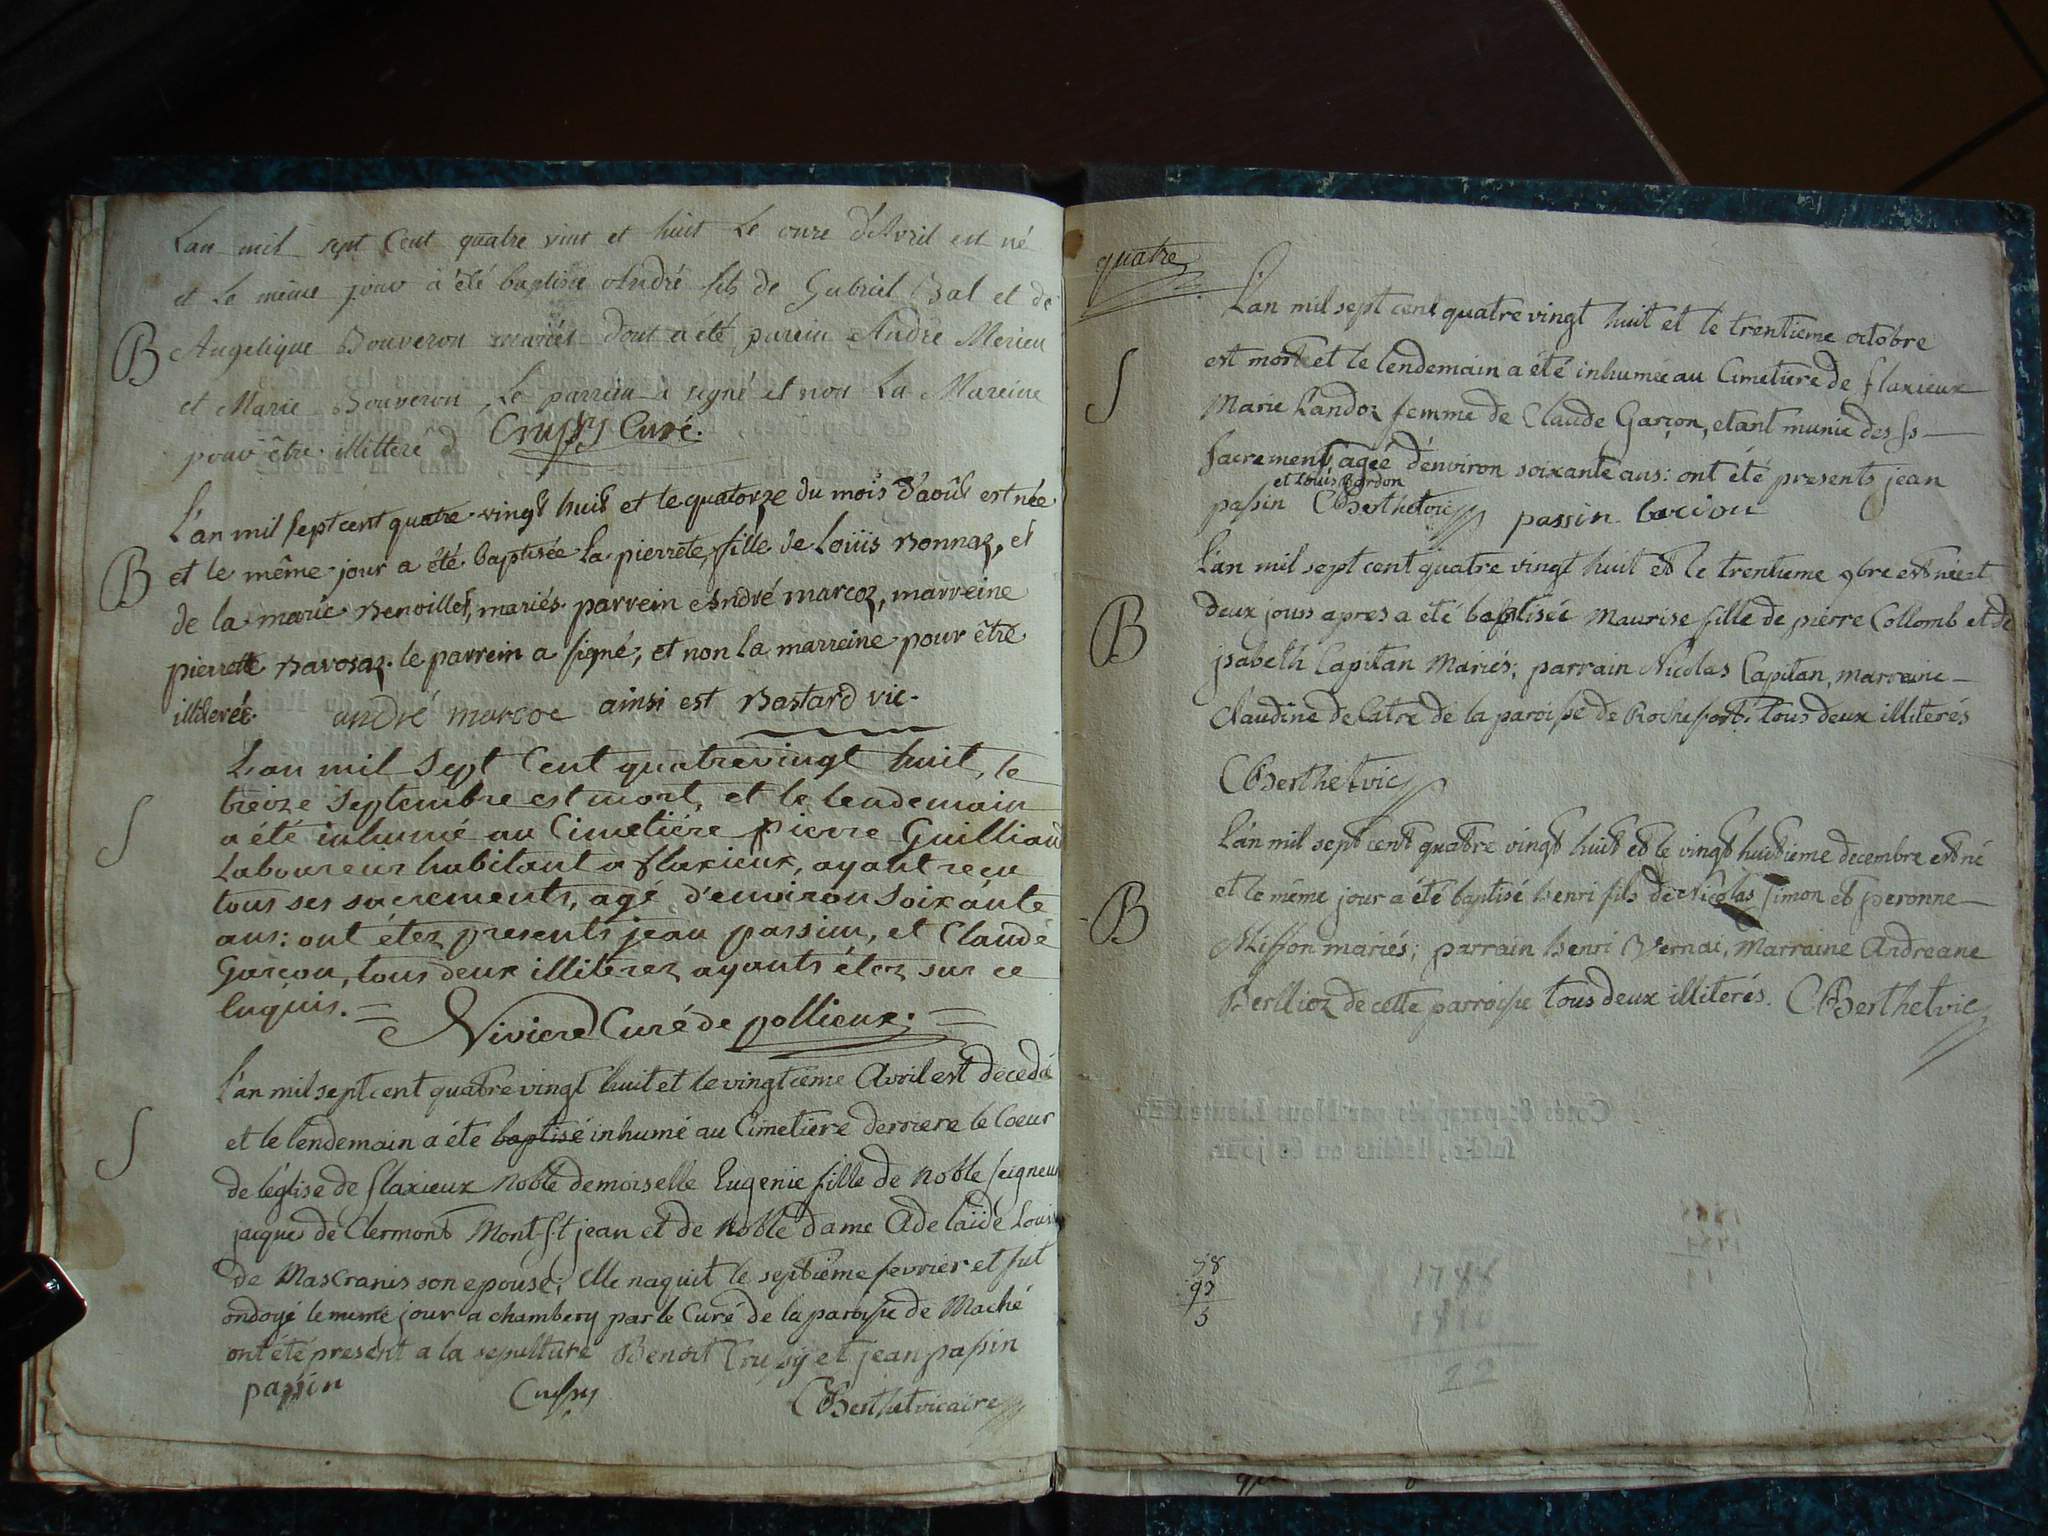 Lan mil sept Cent quatre vint et huit Le onze d'Avril est né
et Le même jour à été baptisé André fils de Gabriel Bal et de
B Angelique Bouveron mariés dont a été parein André Merieu
et Marie Bouveron, Le parrein à signé et non La Mareine
pour être illitteré Crussy Curé.
L'an mil sept cent quatre-vingt huit et le quatorze du mois d'août est née
B et le même jour a été baptisée la pierrete, fille de Loüis Bonnaz, et
de la marie Benoillet, mariés. parrein André marcoz, marreine
pierrette Bavosaz. le parrein a signé, et non la marreine pour être
illiterée. andré marcoe ainsi est Bastard vic.
L'an mil Sept Cent quatrevingt huit, le
S treize Septembre est mort, et le lendemain
a été inhumé au Cimetiére pierre Guilliand
Laboureur habitant a flaxieux, ayant reçu
tous ses sacrements, agé d'environ Soixánte
ans: ont étez presents jean passin, et Claude
Garçon, tous deux illiterez ayants étez sur ce
enquis. = Riviere Curé de pollieux. =
L'an mil sept cent quatre vingt huit et le vingtieme Avril est decedée
S et le lendemain a éte baptisé inhumé au Cimetiere derriere le Coeur
de léglise de flaxieux Noble demoiselle Eugenie fille de Noble seigneur
jacque de Clermont Mont-St jean et de Noble dame Adelaïde Louise
de Mascranis son epouse; Elle naquit le septieme fevrier et fut
ondoyé le meme jour a chambery par le Curé de la paroisse de Maché
ont été present a la sepulture Benoit Crussy et jean passin
passin Crussy CBerthet vicaire
quatre
L'an mil sept cent quatre vingt huit et le trentieme octobre
S est morte et le lendemain a été inhumée au Cimetiere de flaxieux
Marie Landoz femme de Claude Garçon, etant munie des ss
Sacrements, agée d'environ soixante ans: ont été presents jean
et Louis Gardon
passin CBerthet vic passin
L'an mil sept cent quatre vingt huit et le trentieme 9bre est née et
B deux jours apres a été baptisée Maurise fille de pierre Collomb et de
jsabeth Capitan Mariés; parrain Nicolas Capitan, marraine
Claudine de latre de la paroisse de Rochefort: tous deux illiterés
CBerthet vic
L'an mil sept cent quatre vingt huit et le vingt huitieme decembre est né
B et le même jour a été baptisé henri fils de Nicolas Simon et peronne
Misson mariés; parrain henri Vernai, Marraine Andreane
Berllioz de cette parroisse tous deux illiterés. CBerthet vic